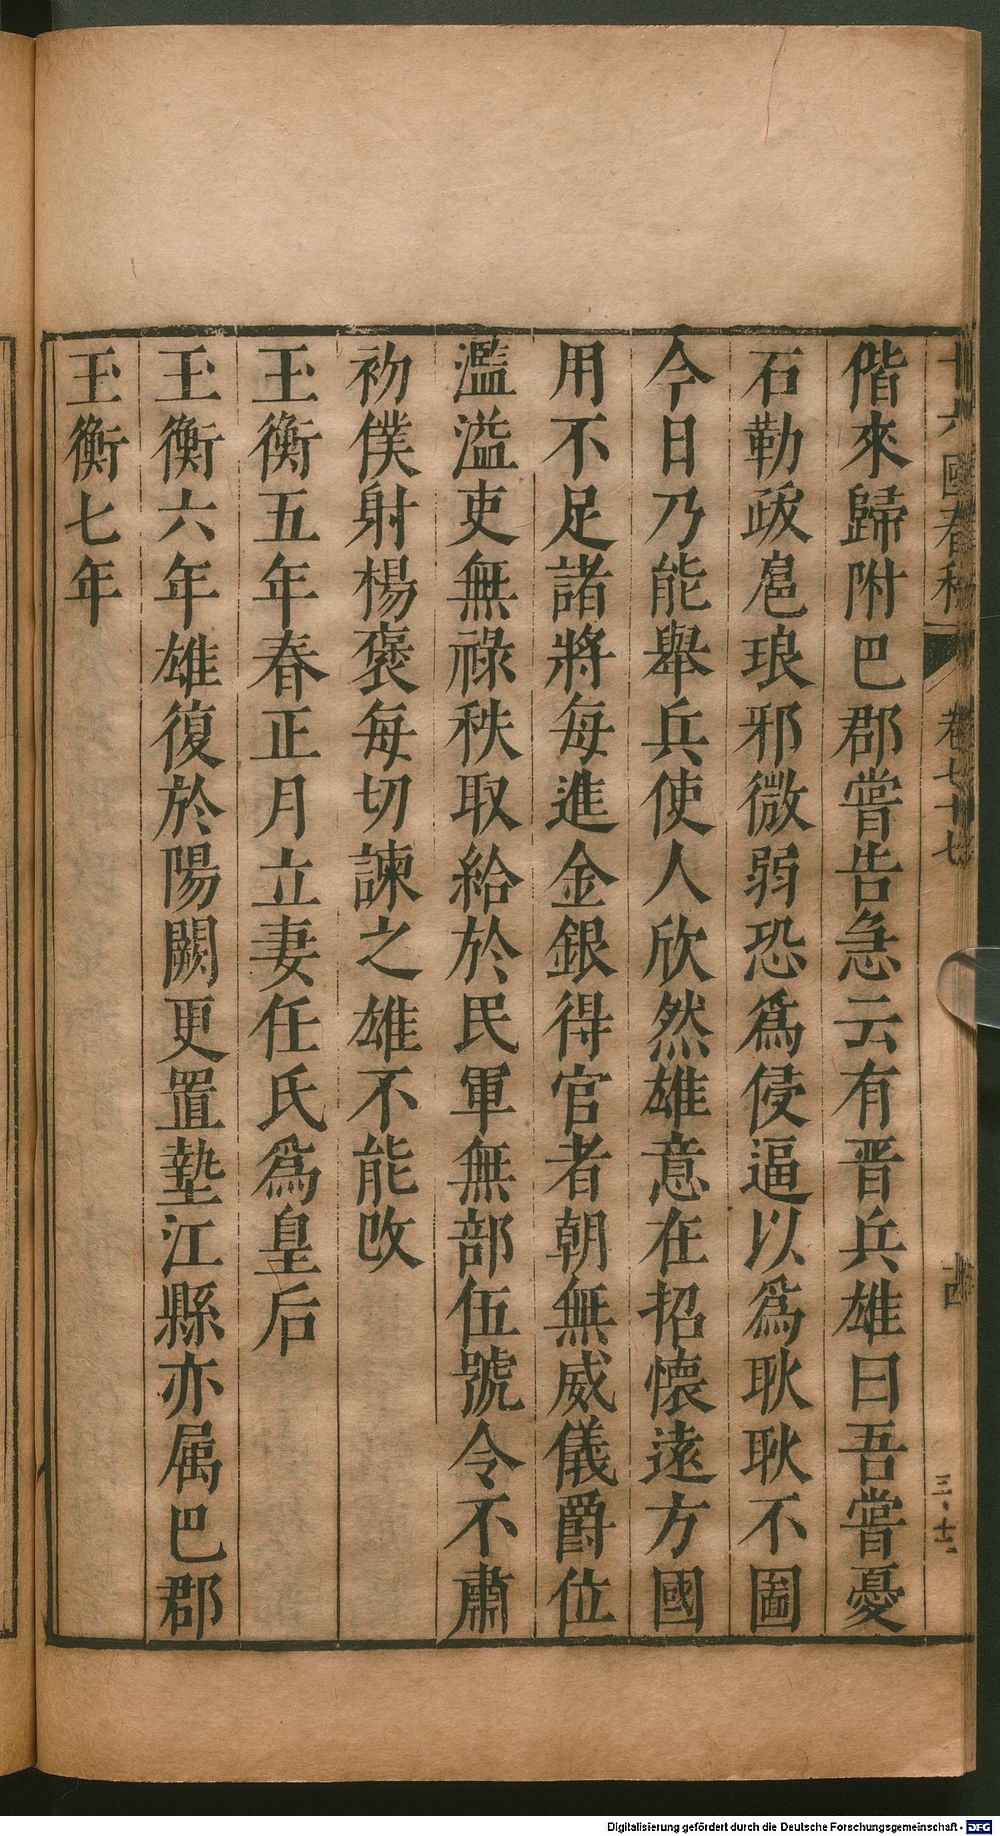 十六國春秋 卷七十七 十四
三·十二
偕來歸附巴郡嘗告急云有晉兵雄曰吾嘗憂
石勒跋扈琅邪微弱恐爲侵逼以爲耿耿不圖
今日乃能舉兵使人欣然雄意在招懷遠方國
用不足諸將每進金銀得官者朝無威儀爵位
濫溢吏無祿秩取給於民軍無部伍號令不肅
初僕射楊褒每切諫之雄不能改
玉衡五年春正月立妻任氏爲皇后
玉衡六年雄復於陽關更置墊江縣亦属巴郡
玉衡七年
Digitalisierung gefördert durch die Deutsche Forschungsgemeinschaft - DFG